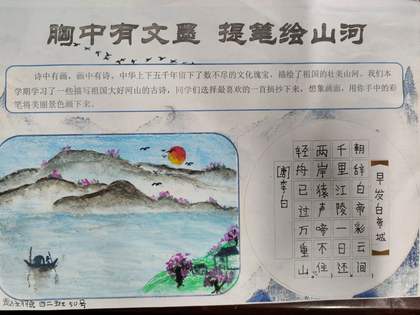 胸中有文墨 提笔绘山河
诗中有画，画中有诗。中华上下五千年留下了数不尽的文化瑰宝，描绘了祖国的壮美山河。我们本
学期学习了一些描写祖国大好河山的古诗，同学们选择最喜欢的一首摘抄下来，想象画面，用你手中的彩
笔将美丽景色画下来。
早发白帝城
朝辞白帝彩云间
千里江陵一日还
两岸猿声啼不住
轻舟已过万重山
[唐]李白
四二班 50号